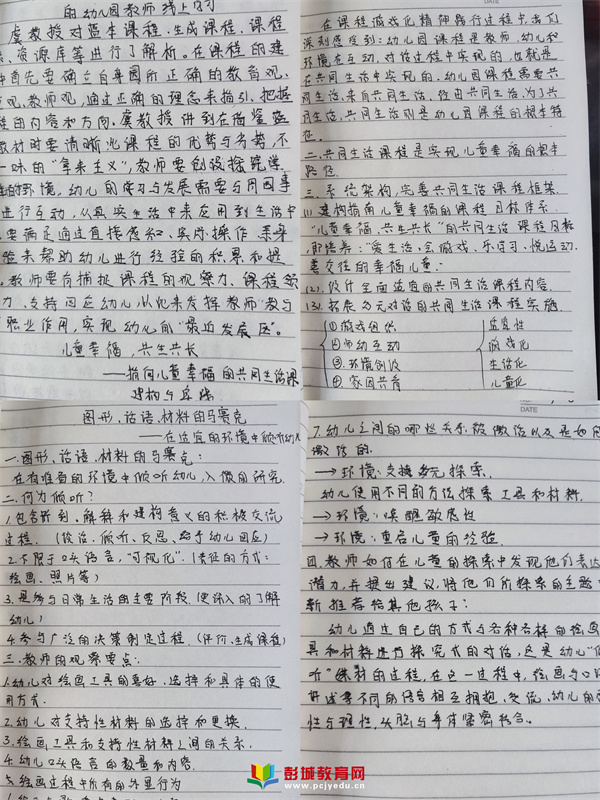 的幼儿园教师线上学习
虞教授对园本课程,生成课程,课程
资源库等进行了解析。在课程的建
中首先要确立自身园所正确的教育观、
观,教师观,通过正确的理念来指引,把握
程的内容和方向。虞教授讲到在借鉴蓝
教材时要清晰此课程的优势与劣势,不
一味的“拿来主义”,教师要创设探究学
的环境,幼儿的学习与发展需要与周围事
进行互动,从真实生活中来应用到生活中
要满足通过直接感知、实际操作、亲身
验来帮助幼儿进行经验的积累和提
教师要有捕捉课程的观察力、课程领
力,支持回应幼儿以此来发挥教师“教与
职业作用,实现幼儿的“最近发展区”。
儿童幸福,共生共长
——指向儿童幸福的共同生活课
建构与实施
DATE
在课程游戏化精神践行过程中,我们
深刻感受到:幼儿园课程是教师,幼儿和
环境在互动,对话过程中实现的,也就是
在共同生活中实现的,幼儿园课程需要共
同生活,来自共同生活,经由共同生活,为了共
同生活,共同生活则是幼儿园课程的根本特
征。
二、共同生活课程是实现儿童幸福的根本
路径.
三、系统架构,完善共同生活课程框架.
(1) 建构指南儿童幸福的课程目标体系.
“儿童幸福,共生共长”的共同生活课程目标
即培养:“爱生活,会游戏,乐学习,悦运动,
善交往的幸福儿童.
(2). 设计全面适宜的共同生活课程内容.
(3). 拓展多元对话的共同生活课程实施
①游戏点供 监督性
②师幼互动 游戏化
③.环境创设 生活化
④ 家园共育 儿童化
图形、话语、材料的马赛克
——在适宜的环境中倾听幼儿
一.图形、话语、材料的马赛克:
在有准备的环境中倾听幼儿,入微的研究.
二.何为倾听?
1.包含听到、解释和建构意义的积极交流
过程.(谈话、倾听、反思、给予幼儿回应)
2.不限于口头语言,“可视化”.(表征的方式:
绘画、照片等)
3.是参与日常生活的主要阶段.(更深入的了解
幼儿)
4.参与广泛的决策制定过程.(评价、生成课程)
三.教师的观察要点:
1.幼儿对绘画工具的喜好、选择和具体的使
用方式.
2.幼儿对支持性材料的选择和更换.
3.绘画工具和支持性材料之间的关系.
4.幼儿口头语言的数量和内容.
5.绘画过程中所有的外显行为
DATE
7.幼儿之间的哪些关系被激活以及是如何
激活的.
→环境:支持多元探索.
幼儿使用不同的方法探索工具和材料.
→环境:唤醒敏感性
→环境:重启儿童的经验.
四.教师如何在儿童的探索中发现他们表达
潜力,并提出建议,将他们所探索的主题
新推荐给其他孩子:
幼儿通过自己的方式与各种各样的绘画
具和材料进行探究式的对话,这是幼儿“倾
听”素材的过程,在这一过程中,绘画与口头
讲述等不同的语言相互拥抱、交流,幼儿的
性与理性,头脑与身体紧密结合。
彭城教育网
www.pcjyedu.cn